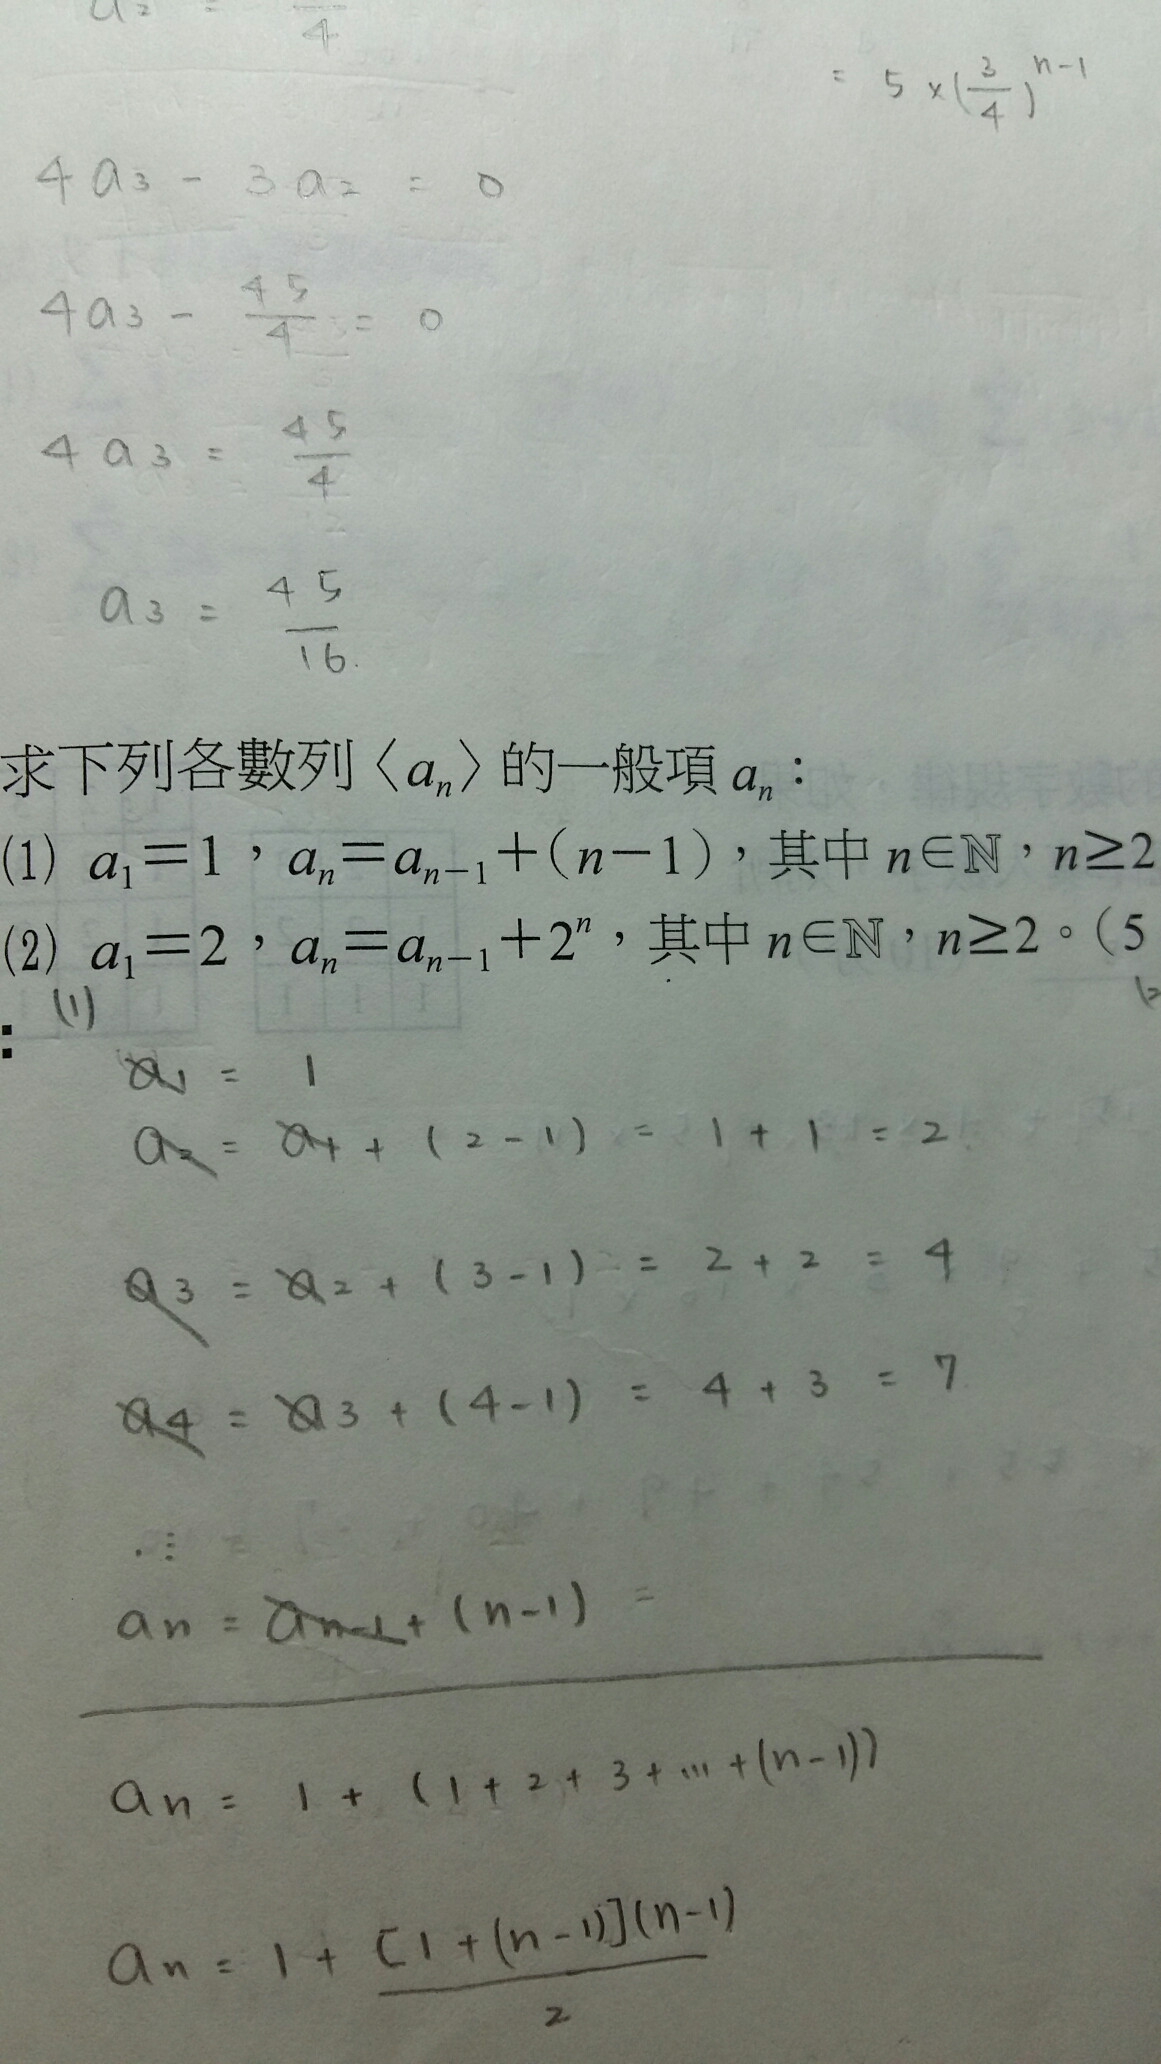 a₂ = ─/4
= 5 × (3/4)ⁿ⁻¹
4a₃ - 3a₂ = 0
4a₃ - 45/4 = 0
4a₃ = 45/4
a₃ = 45/16
求下列各數列〈aₙ〉的一般項 aₙ：
(1) a₁＝1，aₙ＝aₙ₋₁＋(n－1)，其中 n∈ℕ，n≥2
(2) a₁＝2，aₙ＝aₙ₋₁＋2ⁿ，其中 n∈ℕ，n≥2。(5
：
(1)
a₁ = 1
a₂ = a₁ + (2-1) = 1 + 1 = 2
a₃ = a₂ + (3-1) = 2 + 2 = 4
a₄ = a₃ + (4-1) = 4 + 3 = 7
⋮
aₙ = aₙ₋₁ + (n-1) =
aₙ = 1 + (1 + 2 + 3 + ... + (n-1))
aₙ = 1 + [1 + (n-1)](n-1)/2